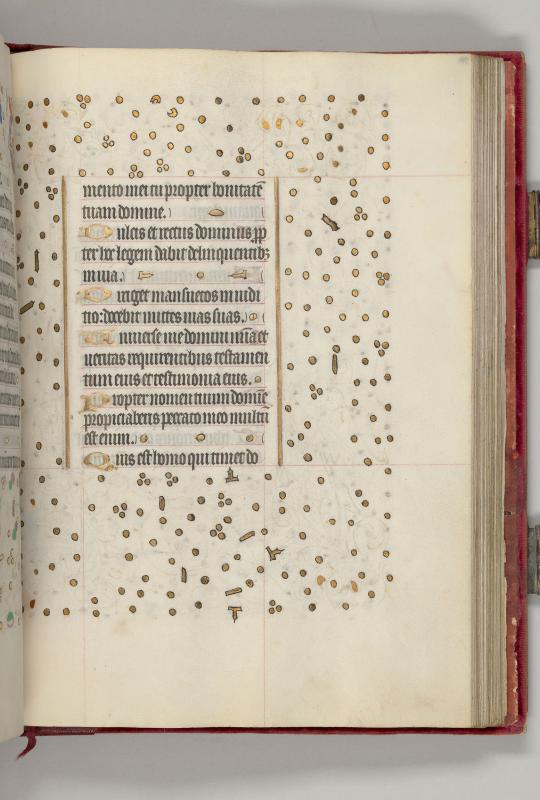 mento mei tu propter bonitatē
tuam domine.
Dulcis et rectus dominus pp̄
ter hoc legem dabit delinquentibꝫ
in uia.
Diriget mansuetos in iudi
tio: docebit mittes uias suas.
Vniuerse uie domini mīa et
ueritas requirentibus testamen
tum eius et testimonia eius.
Propter nomen tuum domīe
propiciaberis peccato meo multū
est enim.
Quis est homo qui timet do